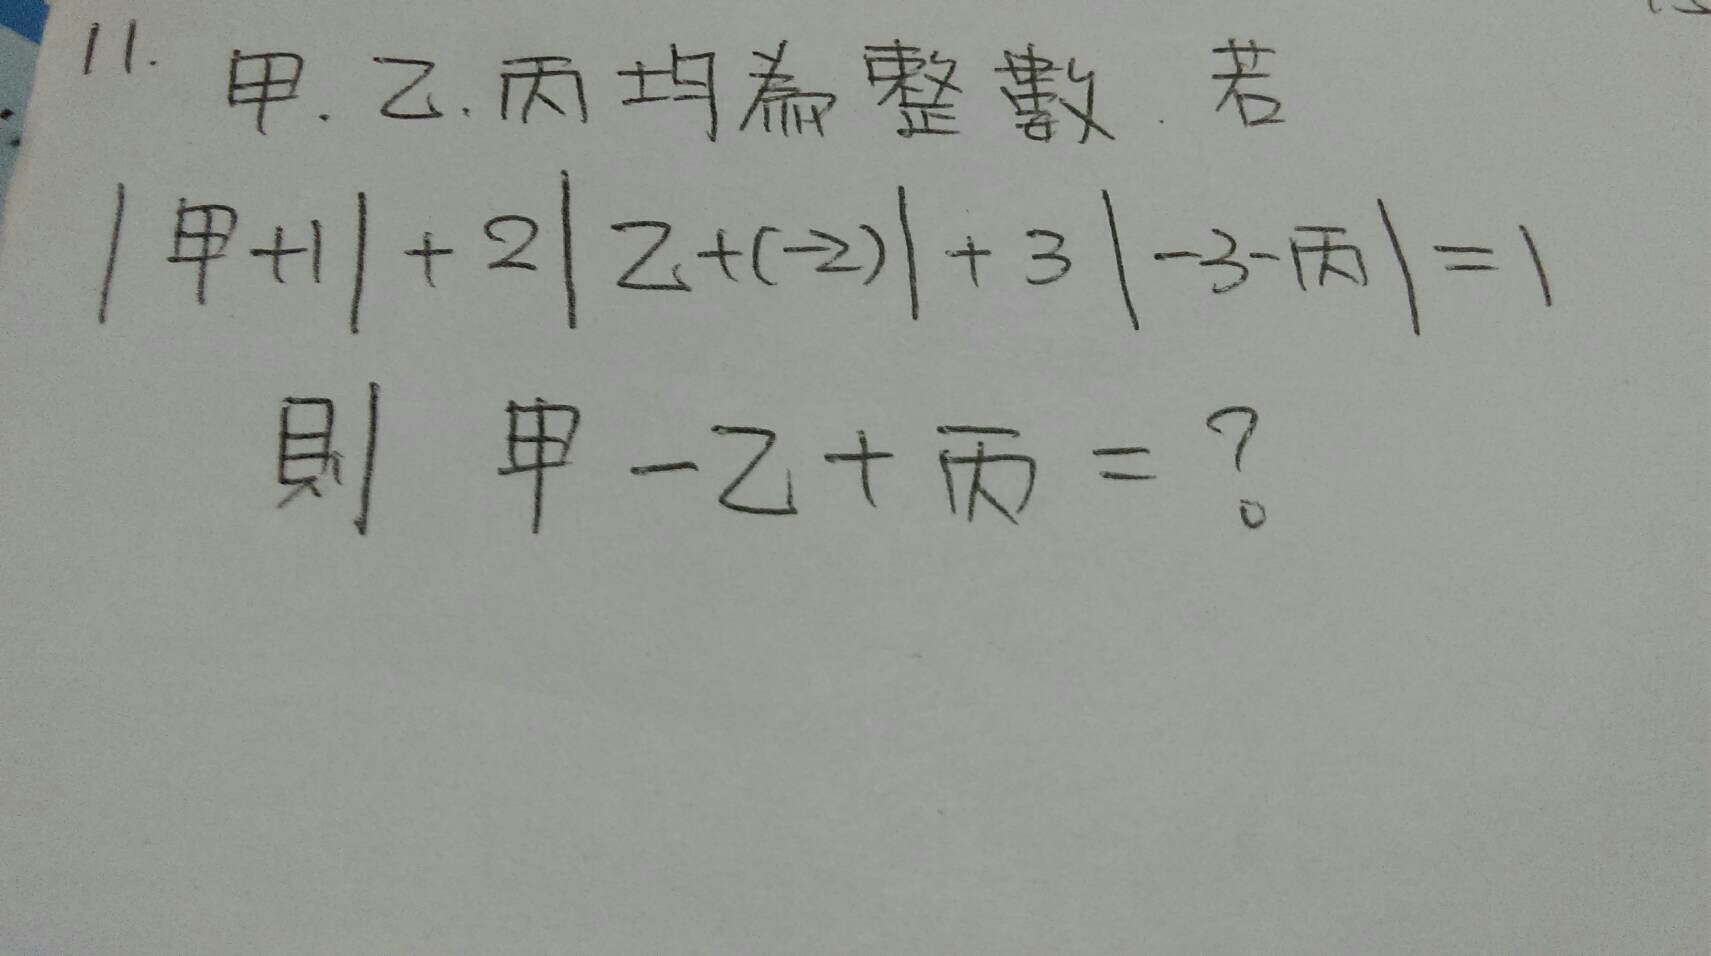 11. 甲.乙.丙均為整數.若
|甲+1|+2|乙+(-2)|+3|-3-丙|=1
則 甲-乙+丙=?